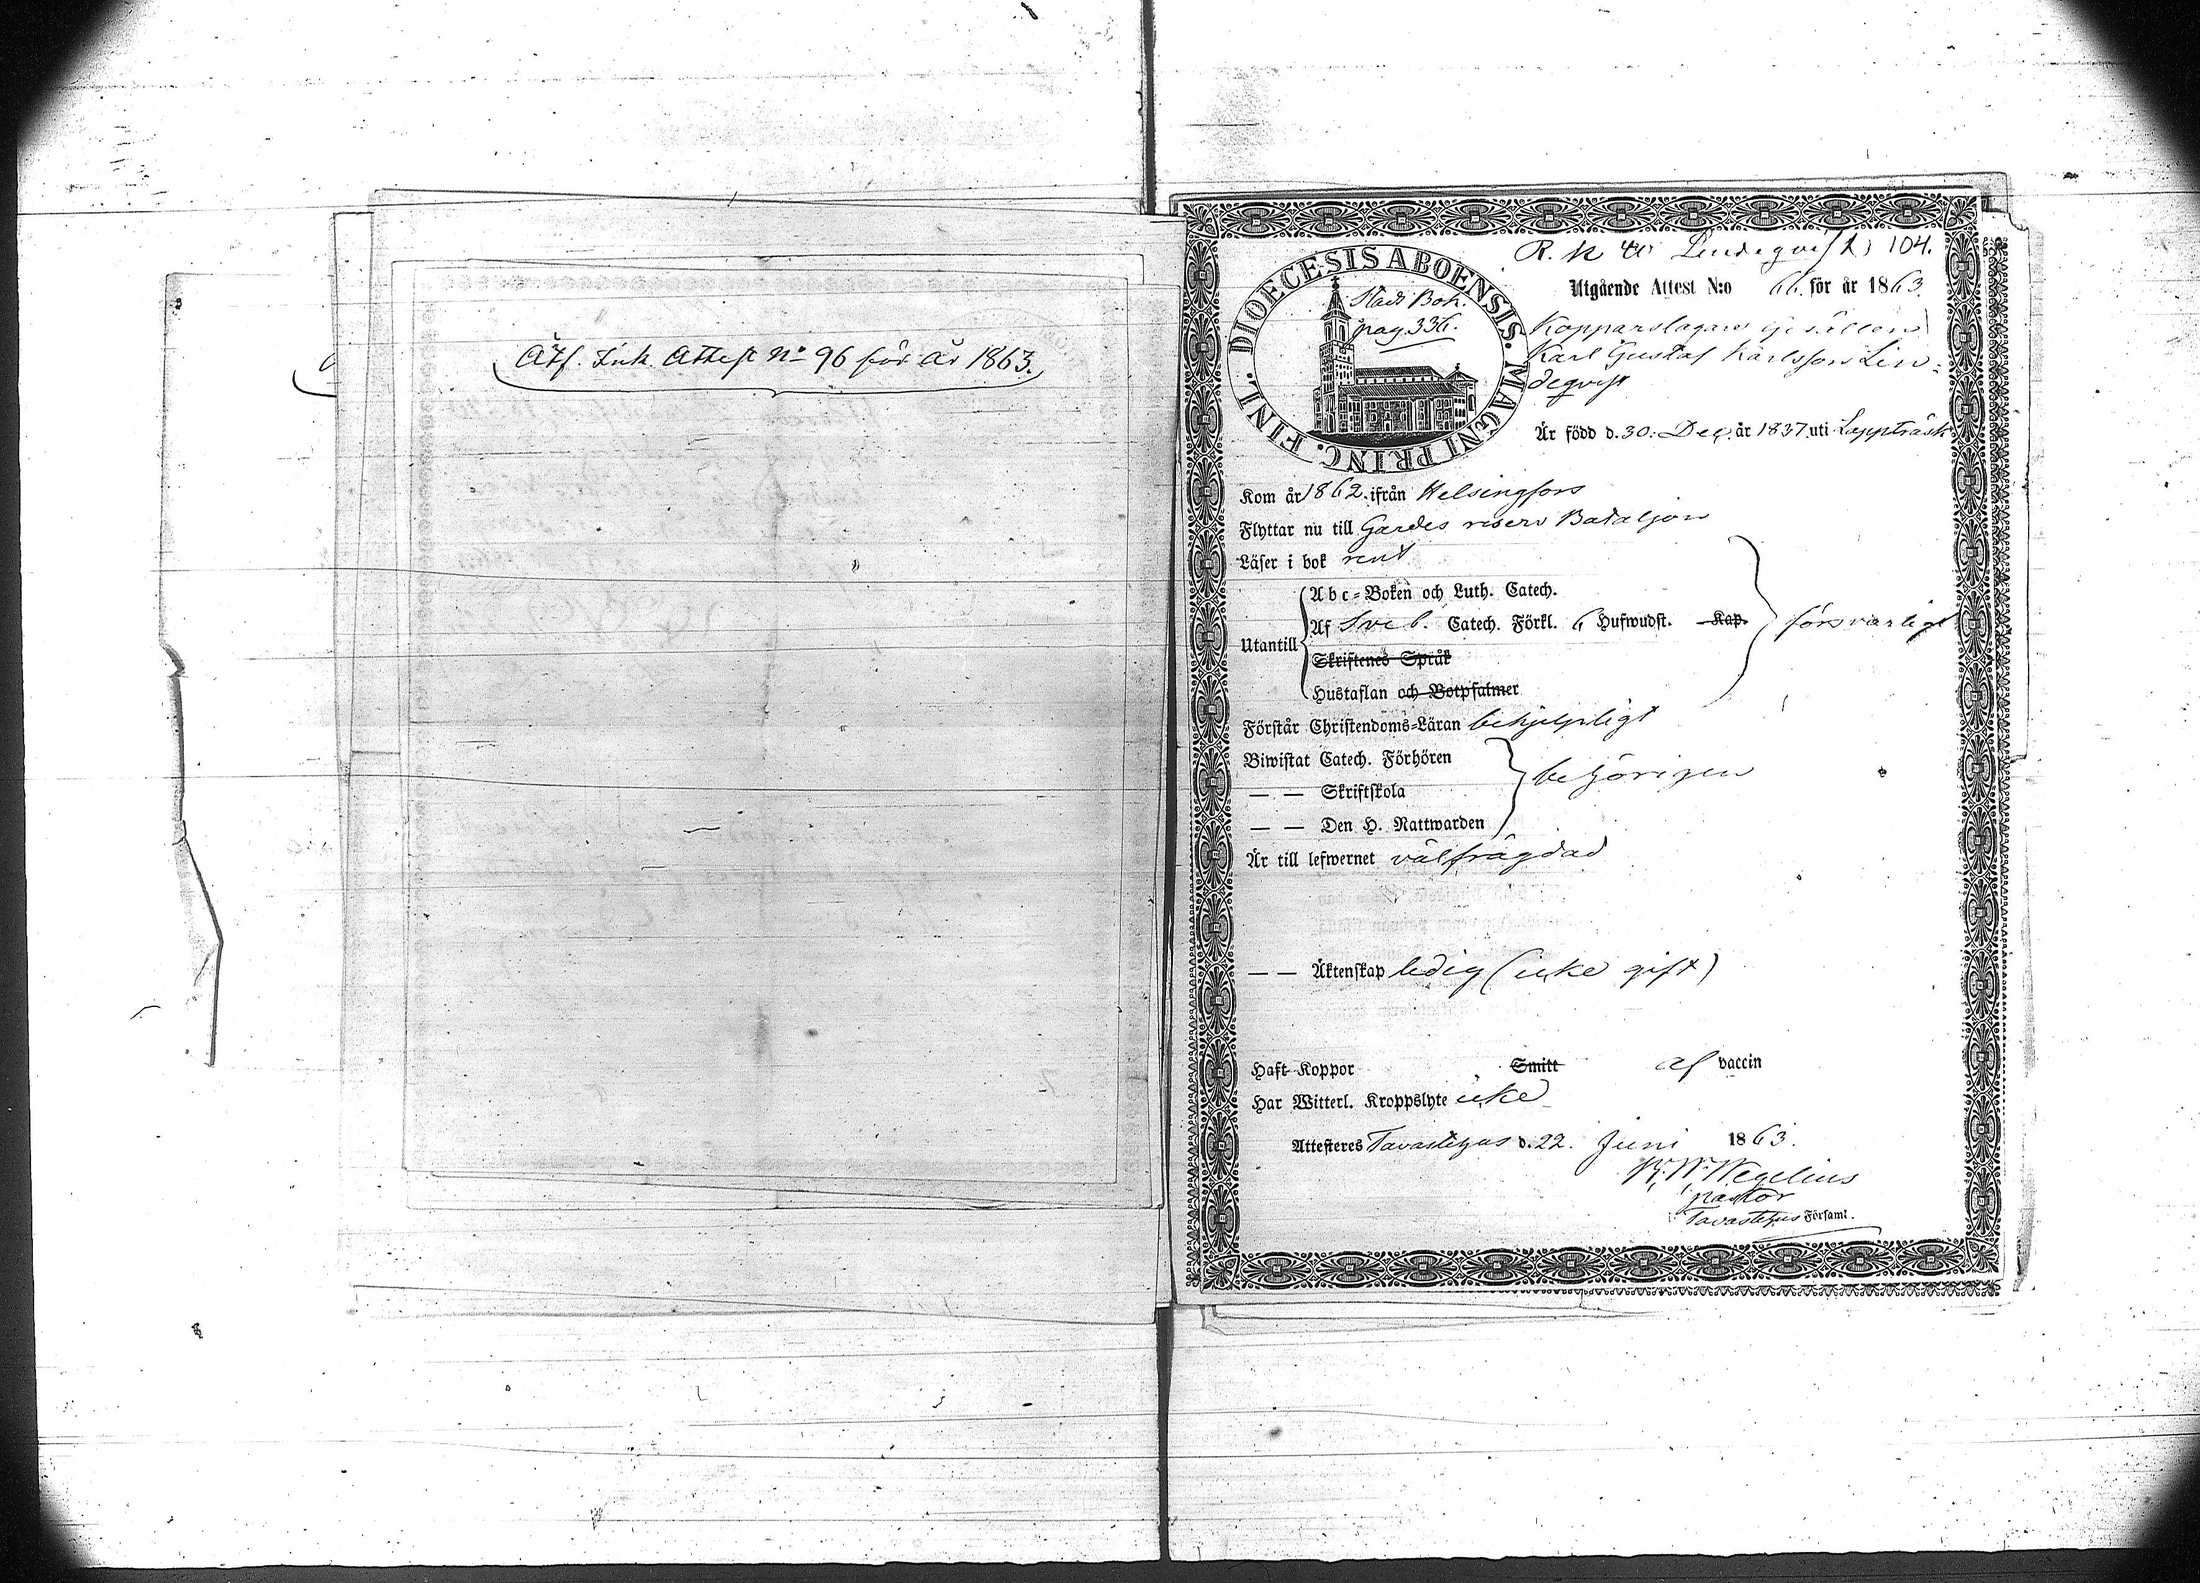 Åtf. Ink. Attest No 96 för år 1863.
R. K. Lindeqvist, 104.
DIOECESIS ABOENSIS. MAGNI PRINC. FINL.
Stads Bok.
pag. 336.
Utgående Attest N:o 66. för år 1863.
Kopparslagare gesällen
Karl Gustaf Karlsson Lin=
deqvist
Är född d. 30. Dec. år 1837. uti Lappträsk
Kom år 1862. ifrån Helsingfors
Flyttar nu till Gardes reserv Bataljon
Läser i bok rent
Utantill
Abc=Boken och Luth. Catech.
Af Sveb. Catech. Förkl. 6 Hufwudst. Kap.
Skriftenes Språk
Hustaflan och Botpsalmer
försvarligt
Förstår Christendoms=Läran behjelpligt
Biwistat Catech. Förhören
— — Skriftskola
— — Den H. Nattwarden
behörigen
Är till lefwernet välfrägdad
— — Äktenskap ledig (icke gift)
Haft Koppor Smitt af vaccin
Har Witterl. Kroppslyte icke
Attesteres Tavastehus d. 22. Juni 1863.
W. Wegelius
pastor
Tavastehus Församl.